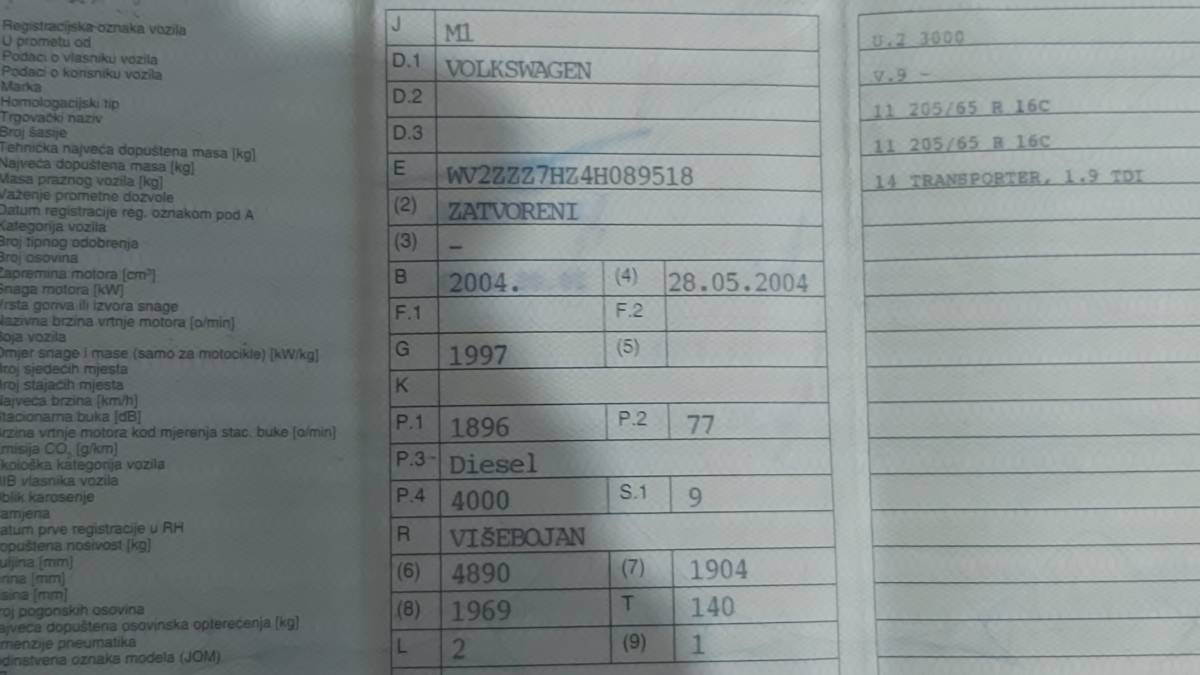 Registracijska oznaka vozila
U prometu od
Podaci o vlasniku vozila
Podaci o korisniku vozila
Marka
Homologacijski tip
Trgovački naziv
Broj šasije
Tehnička najveća dopuštena masa [kg]
Najveća dopuštena masa [kg]
Masa praznog vozila [kg]
Važenje prometne dozvole
Datum registracije reg. oznakom pod A
Kategorija vozila
Broj tipnog odobrenja
Broj osovina
Zapremina motora [cm³]
Snaga motora [kW]
Vrsta goriva ili izvora snage
Nazivna brzina vrtnje motora [o/min]
Boja vozila
Omjer snage i mase (samo za motocikle) [kW/kg]
Broj sjedećih mjesta
Broj stajaćih mjesta
Najveća brzina [km/h]
Stacionarna buka [dB]
Brzina vrtnje motora kod mjerenja stac. buke [o/min]
misija CO₂ [g/km]
kološka kategorija vozila
IB vlasnika vozila
blik karoserije
amjena
atum prve registracije u RH
opuštena nosivost [kg]
uljina [mm]
irina [mm]
isina [mm]
roj pogonskih osovina
ajveća dopuštena osovinska opterećenja [kg]
imenzije pneumatika
edinstvena oznaka modela (JOM)
J M1
D.1 VOLKSWAGEN
D.2
D.3
E WV2ZZZ7HZ4H089518
(2) ZATVORENI
(3) –
B 2004. (4) 28.05.2004
F.1 F.2
G 1997 (5)
K
P.1 1896 P.2 77
P.3 Diesel
P.4 4000 S.1 9
R VIŠEBOJAN
(6) 4890 (7) 1904
(8) 1969 T 140
L 2 (9) 1
U.2 3000
V.9 -
11 205/65 R 16C
11 205/65 R 16C
14 TRANSPORTER, 1.9 TDI